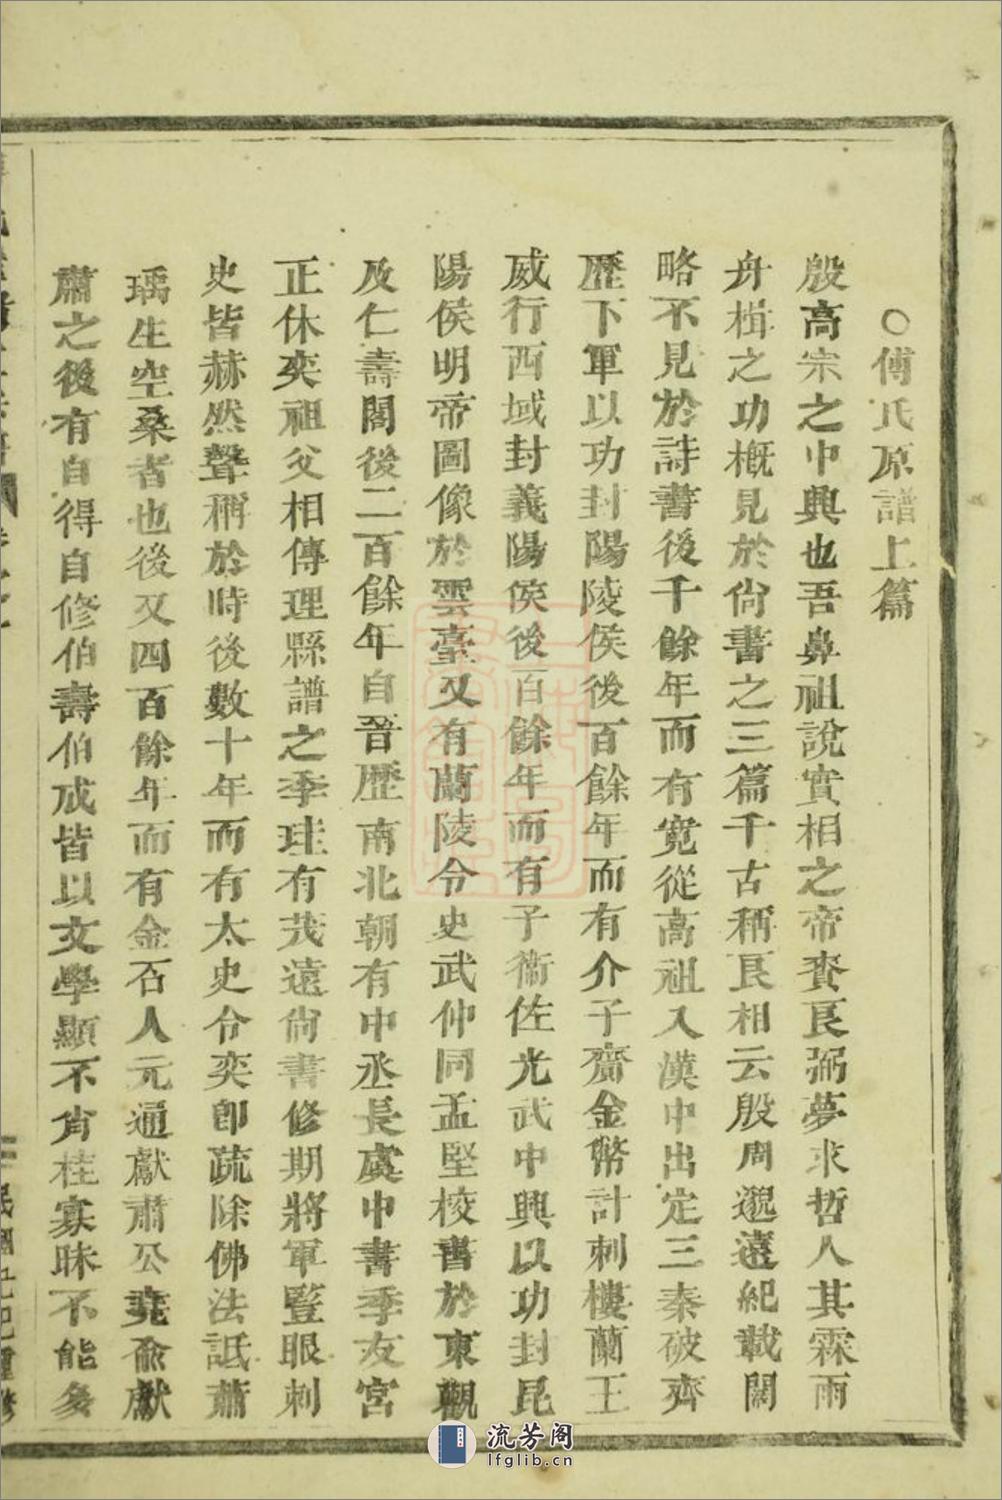 ○傅氏原譜上篇
殷高宗之中興也吾鼻祖說實相之帝賚良弼夢求哲人其霖雨
舟楫之功概見於尙書之三篇千古稱良相云殷周邈遠紀載闕
略不見於詩書後千餘年而有寬從高祖入漢中出定三秦破齊
歷下軍以功封陽陵侯後百餘年而有介子齎金幣計刺樓蘭王
威行西域封義陽侯後百餘年而有子衞佐光武中興以功封昆
陽侯明帝圖像於雲臺又有蘭陵令史武仲同孟堅校書於東觀
及仁壽閣後二百餘年自晉歷南北朝有中丞長虞中書季友宮
正休奕祖父相傳理縣譜之季珪有茂遠尙書修期將軍豎眼刺
史皆赫然聲稱於時後數十年而有太史令奕卽疏除佛法詆蕭
瑀生空桑者也後又四百餘年而有金石人元通獻肅公堯兪獻
肅之後有自得自修伯壽伯成皆以文學顯不肖桂寡昧不能多
民國辛巳重修
流芳阁
lfglib.cn